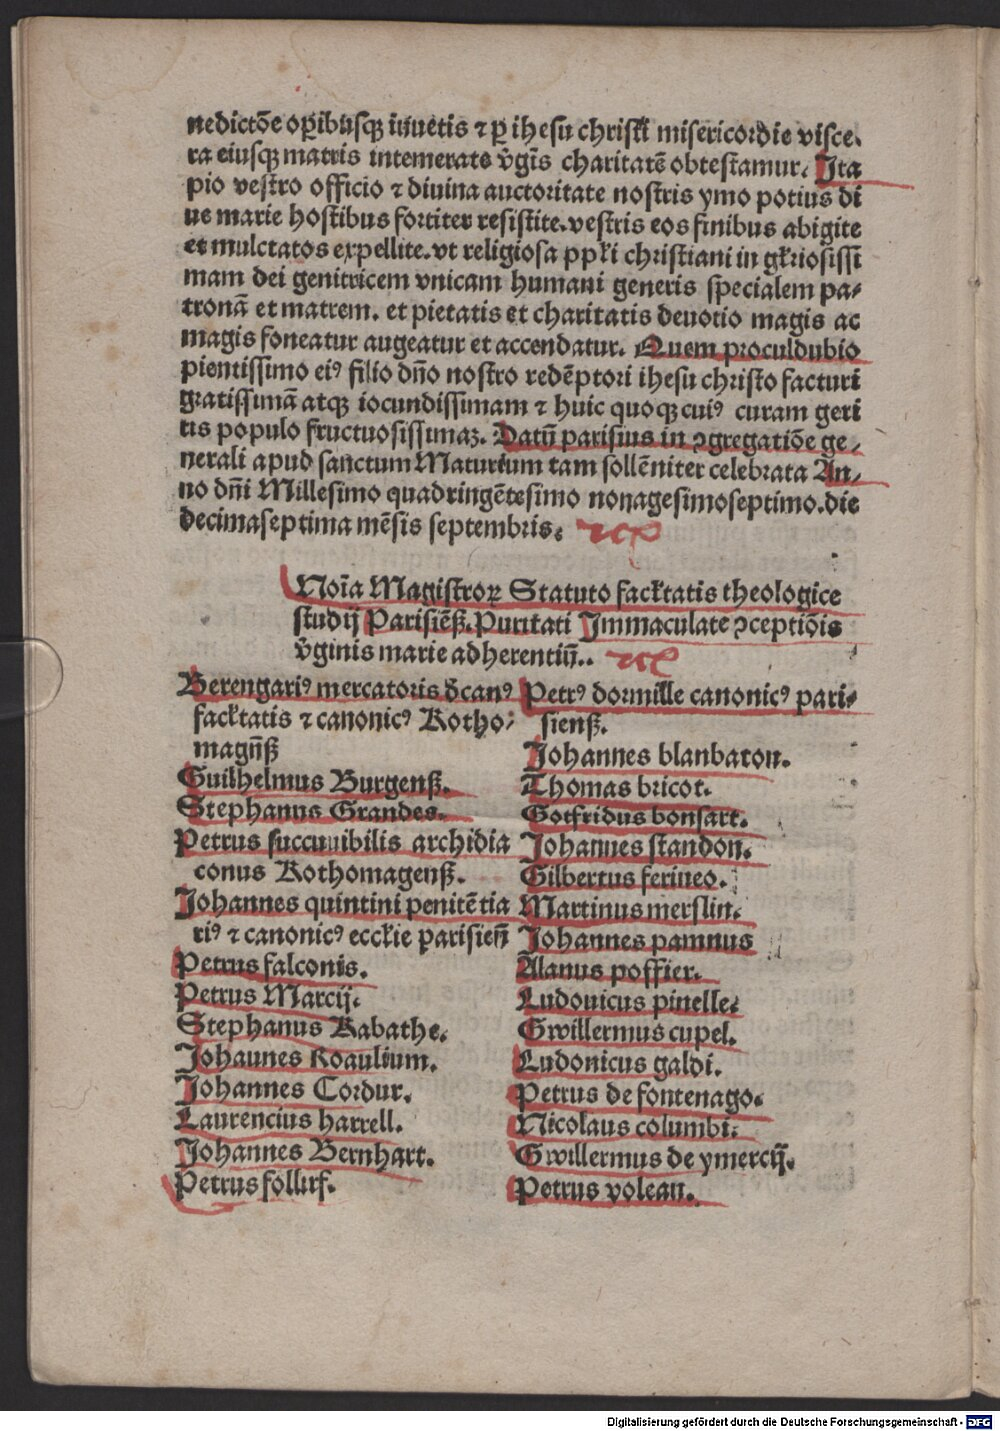 nedictõe op̃ibusq̃ iuuẽtis ⁊ ꝑ ihesu christi misericordie visce-
ra eiusq̃ matris intemerate ṽgĩs charitatẽ obtestamur. Ita
pio vestro officio ⁊ diuina auctoritate nostris ymo potius di
ue marie hostibus fortiter resistite. vestris eos finibus abigite
et mulctatos expellite. vt religiosa ppłi christiani in głriosissi
mam dei genitricem vnicam humani generis specialem pa-
tronã et matrem. et pietatis et charitatis deuotio magis ac
magis foueatur augeatur et accendatur. Quem proculdubio
pientissimo eiꝰ filio dño nostro redẽptori ihesu christo facturi
gratissimã atq̃ iocundissimam ⁊ huic quoq̃ cuiꝰ curam geri
tis populo fructuosissimaz. Datũ parisius in ꝯgregatiõe ge-
nerali apud sanctum Maturium tam sollẽniter celebrata An-
no dñi Millesimo quadringẽtesimo nonagesimoseptimo. die
decimaseptima mẽsis septembris.
Noĩa Magistroꝝ Statuto facłtatis theologice
studij Parisiẽß. Puritati Immaculate ꝯceptiõis
ṽginis marie adherentiũ..
Berengariꝰ mercatoris dcanꝰ
facłtatis ⁊ canonicꝰ Rotho-
magñß
Guilhelmus Burgenß.
Stephanus Grandes.
Petrus succuuibilis archidia
conus Rothomagenß.
Johannes quintini penitẽtia
riꝰ ⁊ canonicꝰ eccłie parisieñ
Petrus falconis.
Petrus Marcij.
Stephanus Rabathe.
Johannes Roaulium.
Johannes Cordur.
Laurencius harrell.
Johannes Bernhart.
Petrus follirf.
Petrꝰ dormille canonicꝰ pari-
sienß.
Johannes blanbaton.
Thomas bricot.
Gotfridus bonsart.
Johannes standon.
Gilbertus ferineo.
Martinus merslin.
Johannes pamnus
Alanus poffier.
Ludouicus pinelle.
Gwillermus cupel.
Ludonicus galdi.
Petrus de fontenago.
Nicolaus columbi.
Gwillermus de ymercij.
Petrus volean.
Digitalisierung gefördert durch die Deutsche Forschungsgemeinschaft - DFG